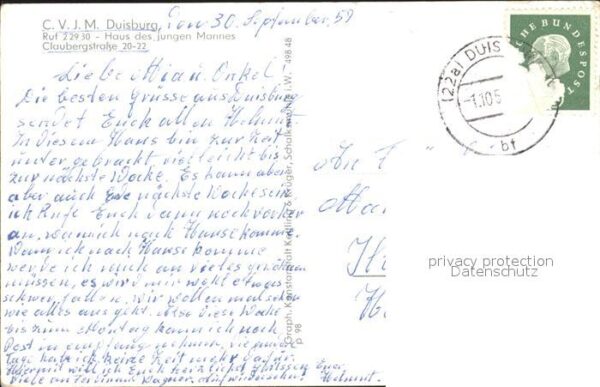 C. V. J. M. Duisburg, den 30. September 59
Ruf 2 29 30 - Haus des jungen Mannes
Claubergstraße 20-22
Liebe Onkel
Die besten Grüsse aus Duisburg
sendet Euch allen Helmut.
In diesem Haus bin zur Zeit
untergebracht vielleicht bis
zur nächste Woche. Es kann aber
aber auch die nächste Woche sein
ich Rufe Euch dann noch vorher
an, wenn ich nach Hause komme.
Wenn ich nach Hause komme
werde ich mich an vieles gewöhnen
müssen, es wird mir wohl etwas
schwer fallen. Wir wollen mal sehen
wie alles aus geht. Also diese Woche
bis zum Montag kann ich noch
Post in empfang nehmen, die paar
Tage habe ich keine Zeit mehr dafür.
Hiermit will ich Euch herzlichst grüssen Euer
Viele an Ferdinand Wagner, auf wiedersehn! Helmut.
Graph. Kunstanstalt Kettling & Krüger, Schalksmühle i. W. 498 48
P 98
CHE BUNDESPOST
(22a) DUIS
-1.10.5
bf
An
privacy protection
Datenschutz